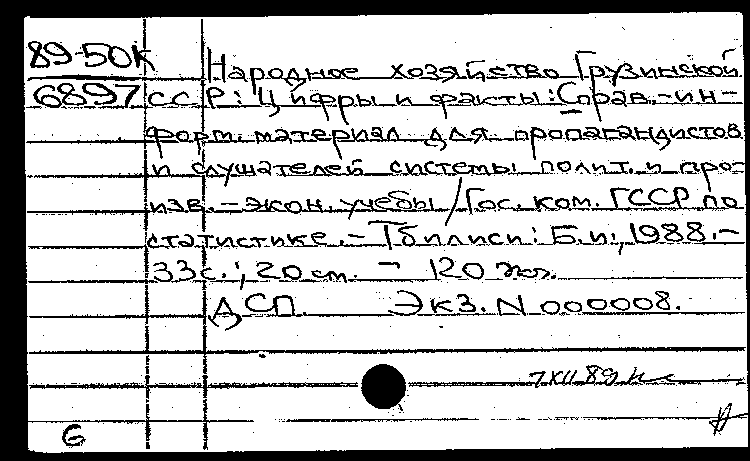 89-50К
Народное хозяйство Грузинской
6897 ССР: Цифры и факты: Справ.-ин-
форм. материал для пропагандистов
и слушателей системы полит. и про-
изв.-экон. учебы / Гос. ком. ГССР по
статистике. - Тбилиси: Б.и., 1988. -
33 с.; 20 см. - 120
ДСП. Экз. N 000008.
7 XII 89
6